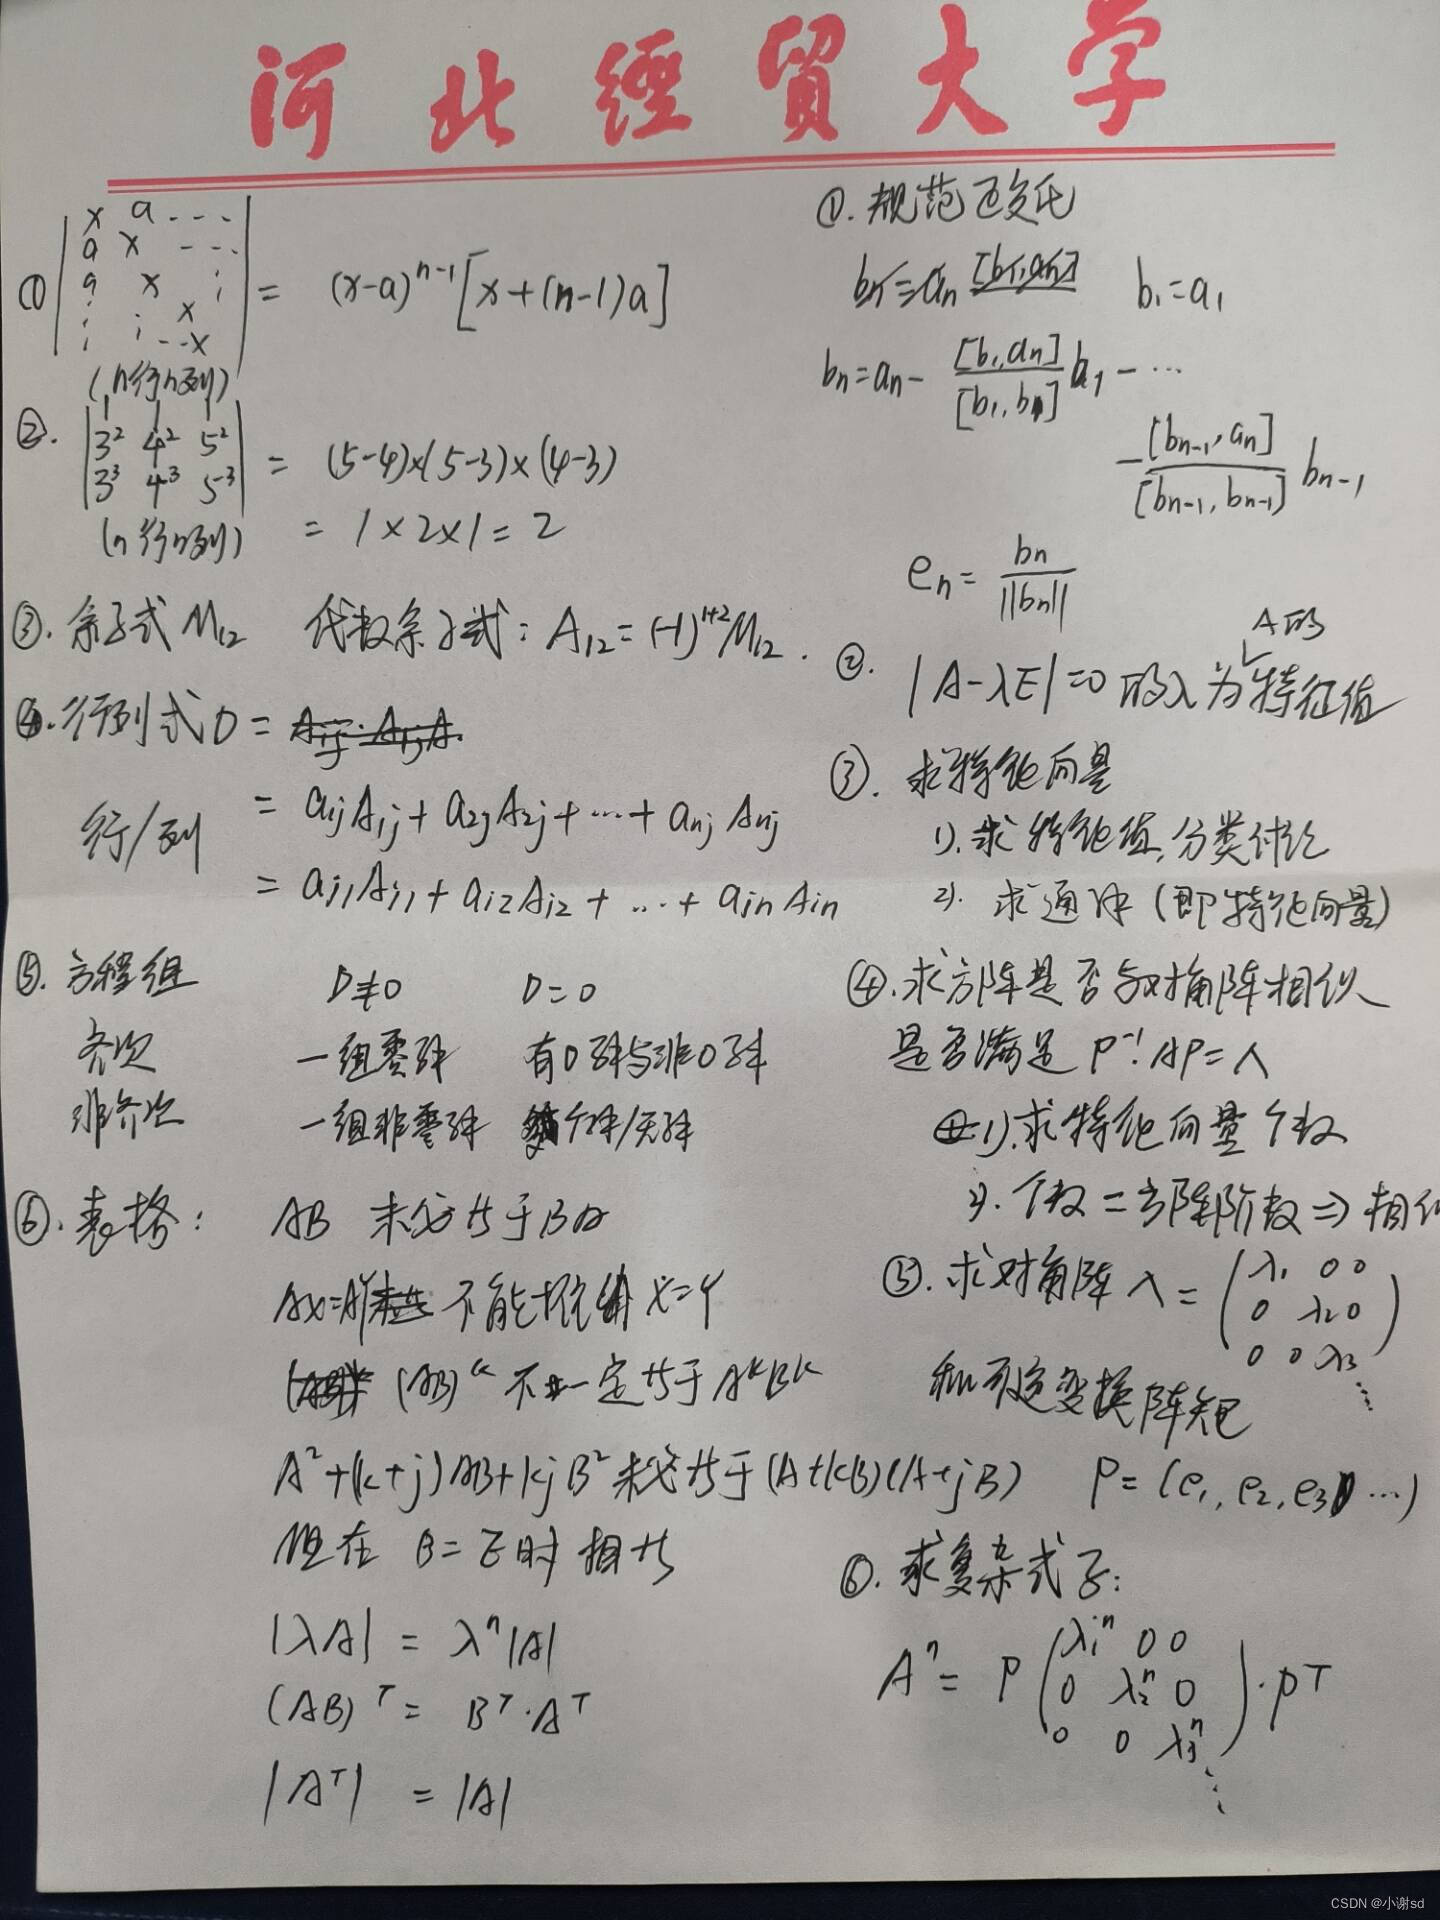 河北經貿大学
① | x a ... |
| a x ... |
| a x ⋮ |
| ⋮ ⋮ x |
| ⋮ ... x | = (x-a)^{n-1}[x+(n-1)a]
(n行n列)
②. | 1 1 1 |
| 3² 4² 5² |
| 3³ 4³ 5³ | = (5-4)×(5-3)×(4-3)
(n行n列) = 1×2×1=2
③. 余子式 M₁₂ 代数余子式: A₁₂=(-1)^{1+2}M₁₂.
④. 行列式 D =
行/列 = a_{1j}A_{1j}+a_{2j}A_{2j}+...+a_{nj}A_{nj}
= a_{j1}A_{j1}+a_{i2}A_{i2}+...+a_{jn}A_{in}
⑤. 方程组 D≠0 D=0
齐次 一组零解 有0解与非0解
非齐次 一组非零解 个解/无解
⑥. 表格: AB 未必等于BA
AX=AY 不能推出 X=Y
(AB)^k 不一定等于 A^kB^k
A²+(k+j)AB+kjB² 未必等于(A+kB)(A+jB)
但在 B=E时相等
|λA| = λⁿ|A|
(AB)ᵀ = Bᵀ·Aᵀ
|Aᵀ| = |A|
①. 规范正交化
b₁=a₁
b_n=a_n- [b₁,a_n]/[b₁,b₁] b₁ - ...
- [b_{n-1},a_n]/[b_{n-1},b_{n-1}] b_{n-1}
e_n= b_n/||b_n||
A的
②. |A-λE|=0 的λ为特征值
③. 求特征向量
1). 求特征值,分类讨论
2). 求通解(即特征向量)
④. 求方阵是否与对角阵相似
是否满足 P⁻¹AP=Λ
1). 求特征向量个数
2). 个数=方阵阶数⇒相似
⑤. 求对角阵 Λ = ( λ₁ 0 0
0 λ₂ 0
0 0 λ₃ ⋱ )
和可逆变换阵矩
P=(e₁, e₂, e₃ ...)
⑥. 求复杂式子:
Aⁿ = P ( λ₁ⁿ 0 0
0 λ₂ⁿ 0
0 0 λ₃ⁿ ⋱ ) · Pᵀ
CSDN @小谢sd